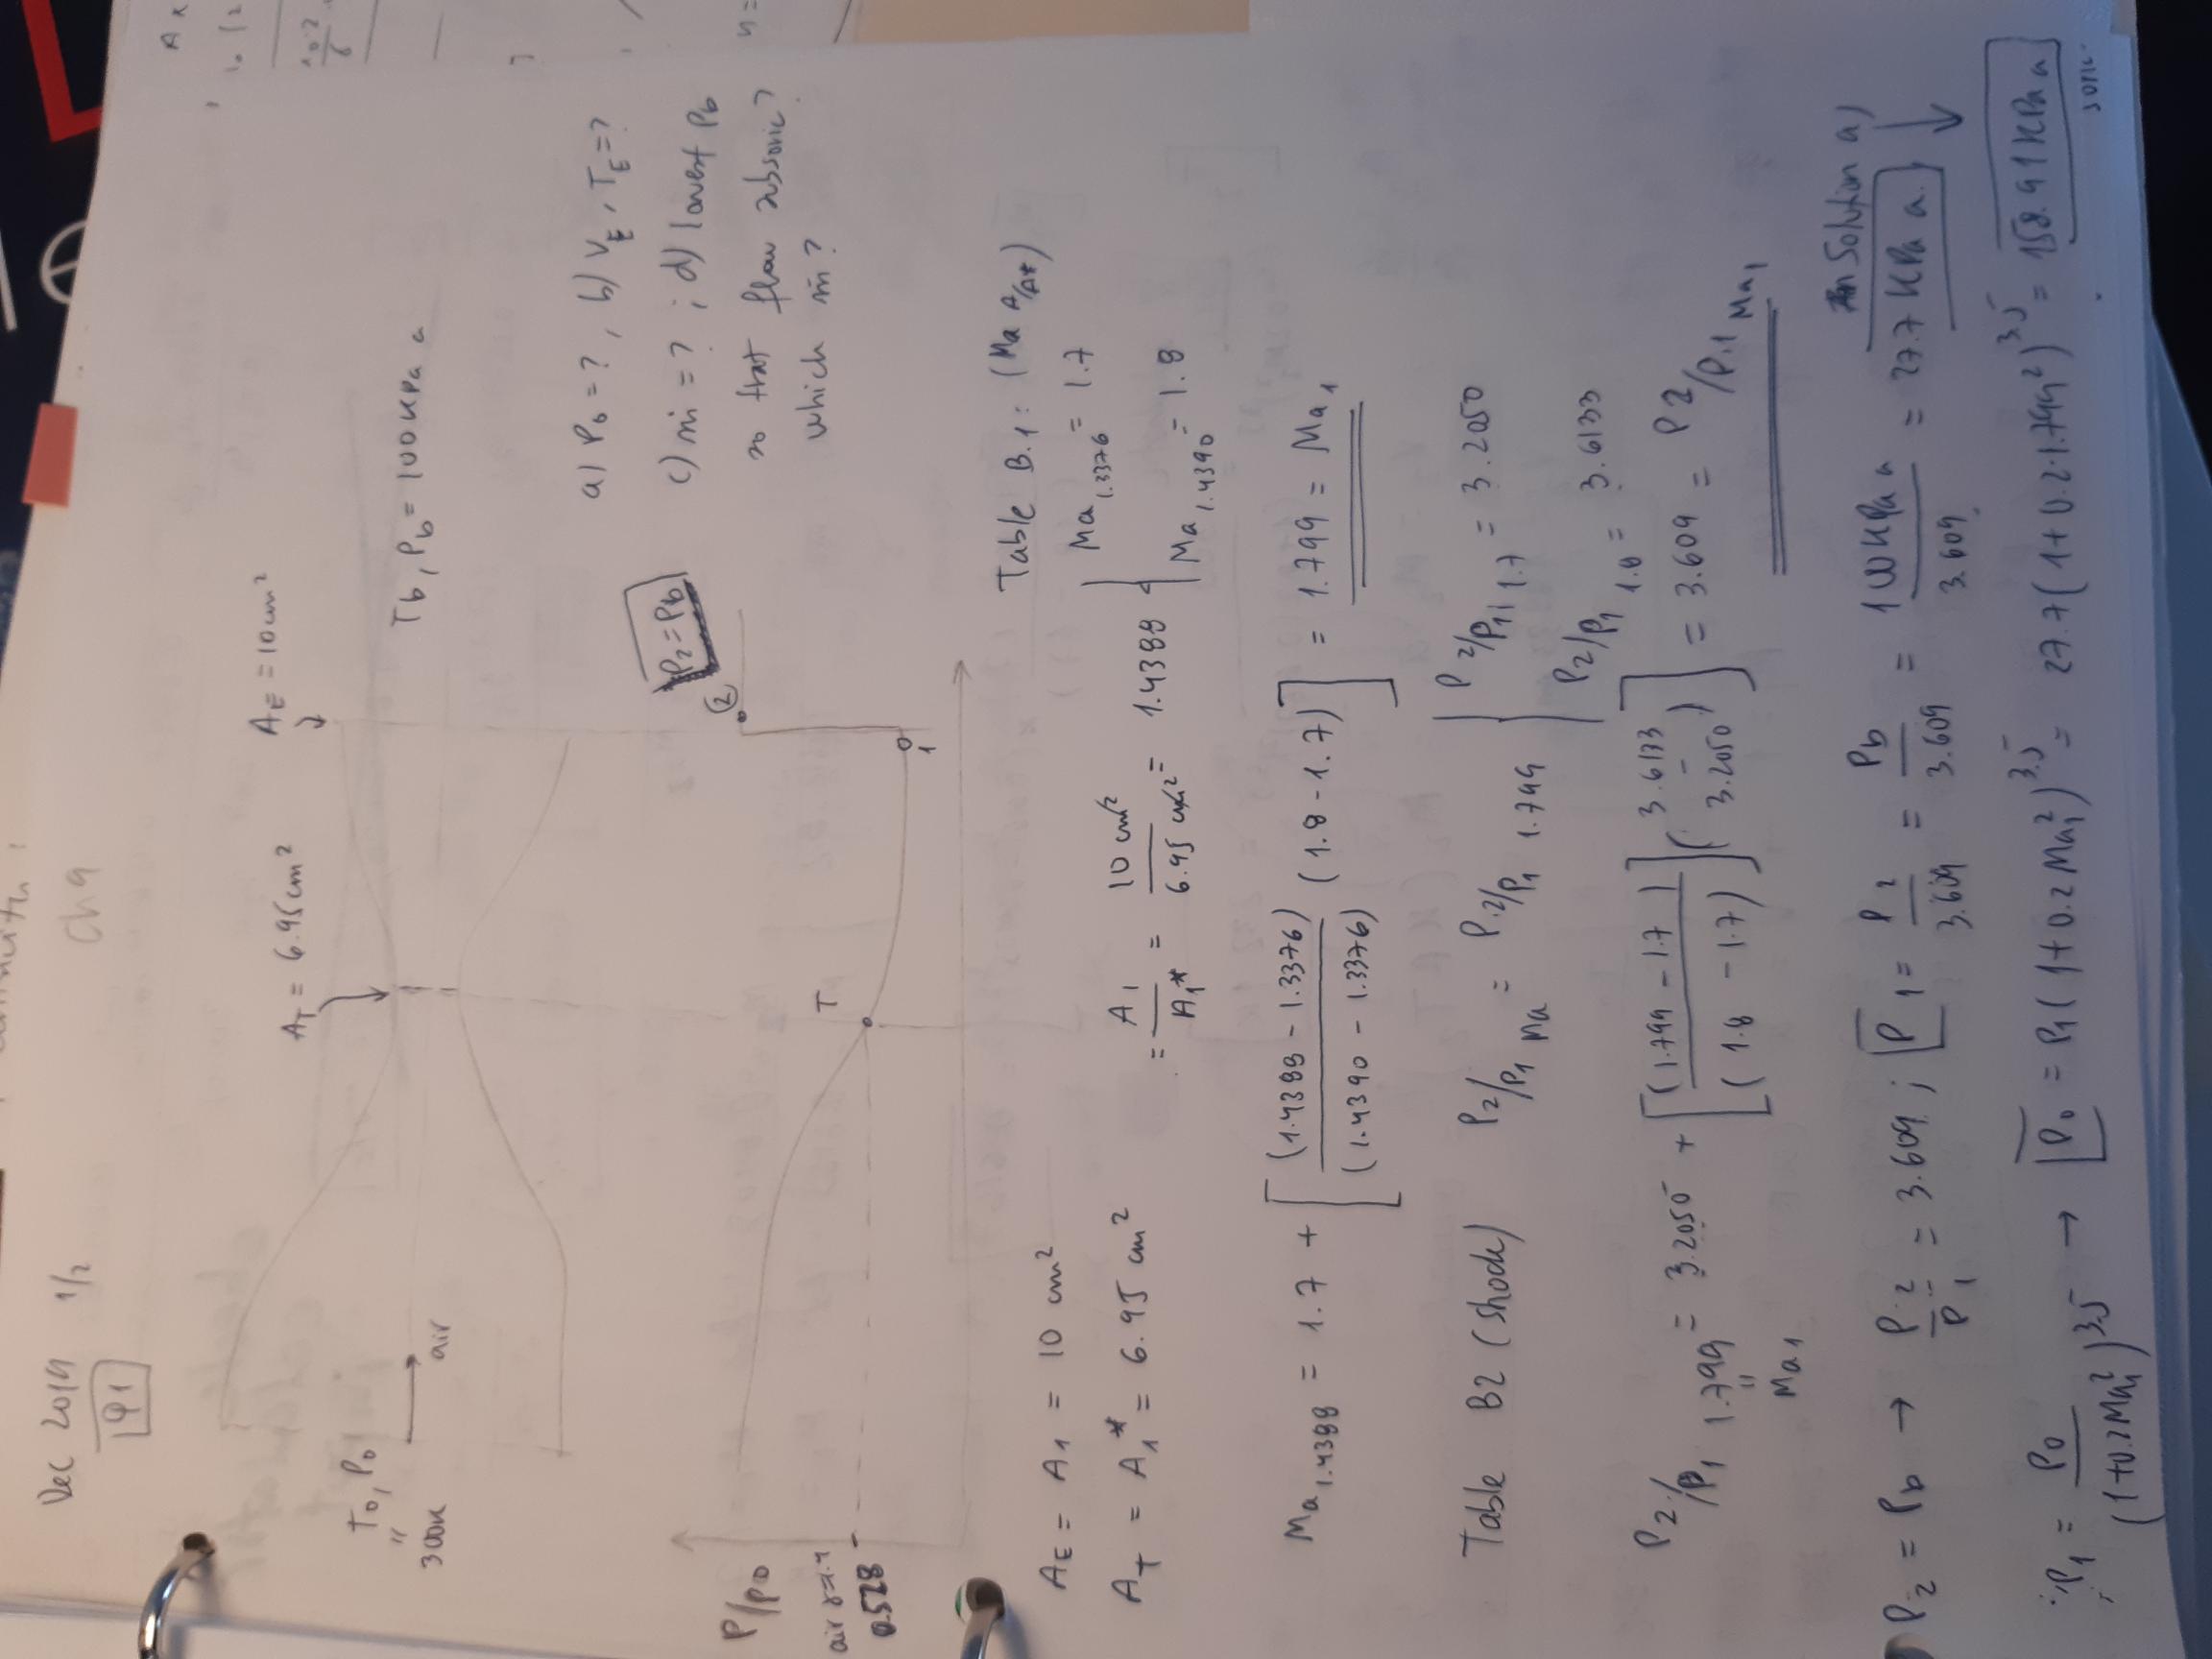 Dec 2019 1/2
Ch 9
P1
A_T = 6.95 cm²
A_E = 10 cm²
T₀, P₀
"
300K
air
T_b, P_b = 100 KPa a
a) P₀ = ?, b) V_E, T_E = ?
c) ṁ = ? ; d) lowest P_b
so that flow subsonic?
which ṁ?
P₂ = P_b
②
P/P₀
air γ=1.4
0.528
T
1
Table B.1: (Ma A/A*)
A_E = A₁ = 10 cm²
Ma 1.3376 = 1.7
A_T = A₁* = 6.95 cm²
= A₁/A₁* = 10 cm²/6.95 cm² = 1.4388
Ma 1.4390 = 1.8
Ma 1.4388 = 1.7 + [(1.4388 - 1.3376)/(1.4390 - 1.3376) (1.8 - 1.7)] = 1.799 = Ma₁
Table B2 (shock) P₂/P₁ Ma = P₂/P₁ 1.799
P₂/P₁ 1.7 = 3.2050
P₂/P₁ 1.8 = 3.6133
P₂/P₁ 1.799 = 3.2050 + [[(1.799 - 1.7)/(1.8 - 1.7)] (3.6133 - 3.2050)] = 3.609 = P₂/P₁ Ma₁
"
Ma₁
Solution a)
P₂ = P_b → P₂/P₁ = 3.609 ; P₁ = P₂/3.609 = P_b/3.609 = 100 KPa a/3.609 = 27.7 KPa a.
P₁ = P₀/(1+0.2Ma₁²)^3.5 → P₀ = P₁(1+0.2Ma₁²)^3.5 = 27.7(1+0.2·1.799²)^3.5 = 158.91 KPa a